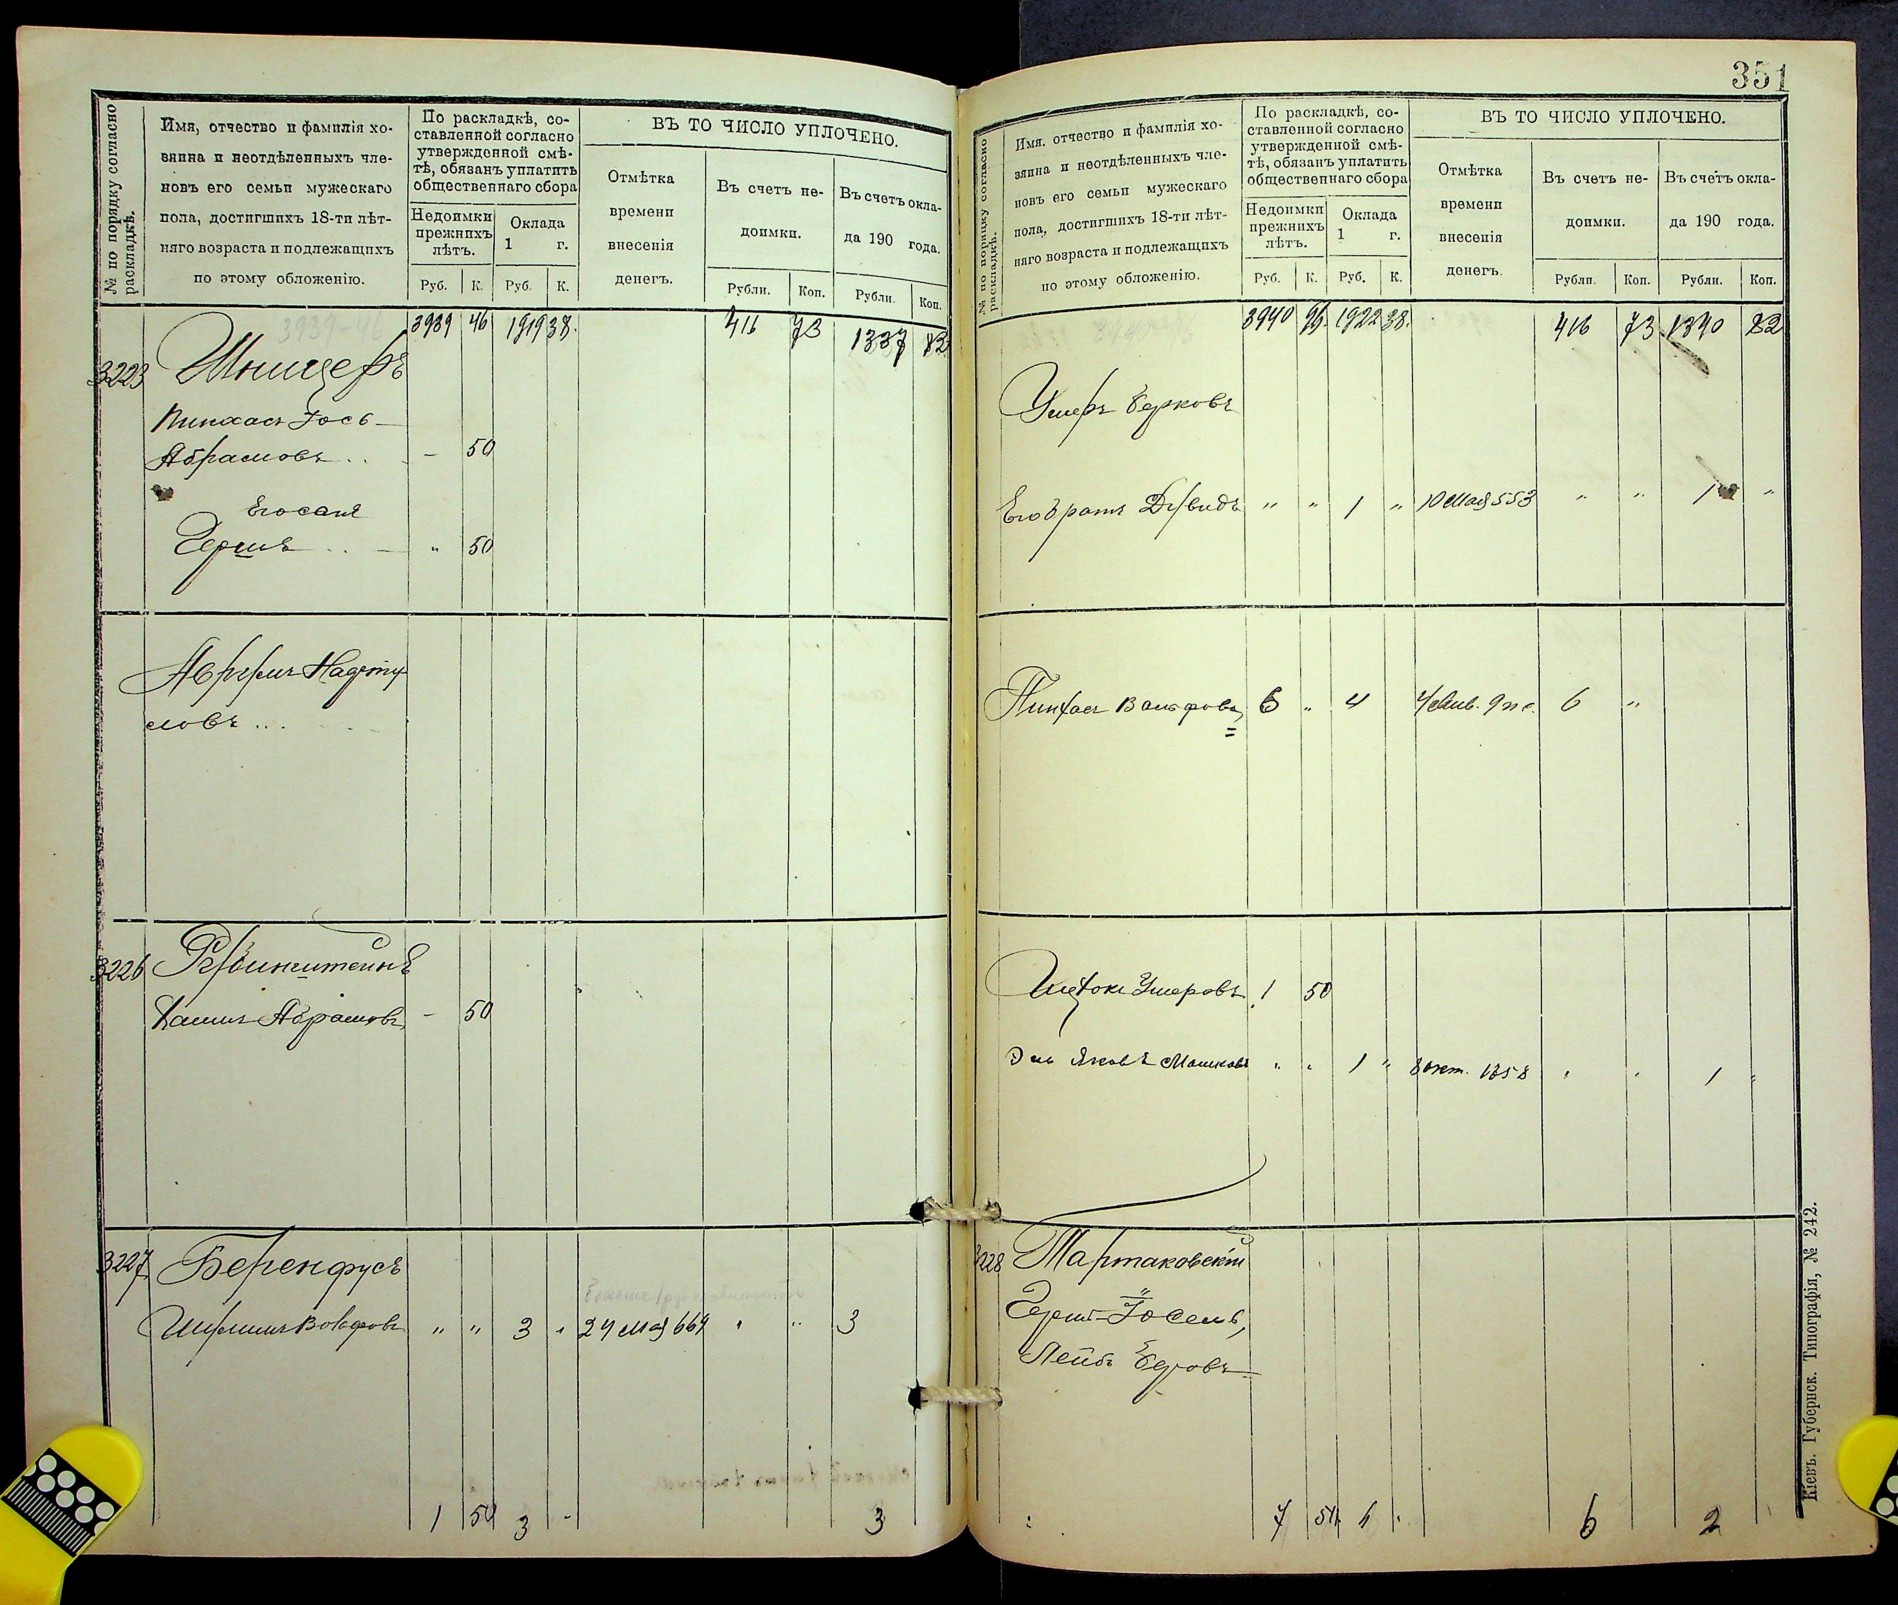 № по порядку согласно
раскладкѣ.
Имя, отчество и фамилія хо-
зяина и неотдѣленныхъ чле-
новъ его семьи мужескаго
пола, достигшихъ 18-ти лѣт-
няго возраста и подлежащихъ
по этому обложенію.
По раскладкѣ, со-
ставленной согласно
утвержденной смѣ-
тѣ, обязанъ уплатить
общественнаго сбора
Недоимки
прежнихъ
лѣтъ.
Оклада
1 г.
Руб. К. Руб. К.
ВЪ ТО ЧИСЛО УПЛОЧЕНО.
Отмѣтка
времени
внесенія
денегъ.
Въ счетъ не-
доимки.
Въ счетъ окла-
да 190 года.
Рубли. Коп. Рубли. Коп.
3939 46 1919 38. 416 73 1337 82
3223 Шницеръ
Пинхасъ Іось
Абрамовъ .. — 50
Его сынъ
Гершъ .. — " 50
Авррумъ
словъ ...
3226
Хаимъ Абрамовъ — 50
3227 Беренфусъ
Вольфовъ " " 3 " 24 мая 664 " " 3
1 50 3 - 3
351
№ по порядку согласно
раскладкѣ.
Имя. отчество и фамилія хо-
зяина и неотдѣленныхъ чле-
новъ его семьи мужескаго
пола, достигшихъ 18-ти лѣт-
няго возраста и подлежащихъ
по этому обложенію.
По раскладкѣ, со-
ставленной согласно
утвержденной смѣ-
тѣ, обязанъ уплатить
общественнаго сбора
Недоимки
прежнихъ
лѣтъ.
Оклада
1 г.
Руб. К. Руб. К.
ВЪ ТО ЧИСЛО УПЛОЧЕНО.
Отмѣтка
времени
внесенія
денегъ.
Въ счетъ не-
доимки.
Въ счетъ окла-
да 190 года.
Рубли. Коп. Рубли. Коп.
3940 96. 1922 38. 416 73 1340 82
Умеръ Берковъ
Его братъ Дувидъ " " 1 " 10 мая 553 " " 1 "
Пинхасъ Вольфовъ 6 " 4 6 "
Ицхокъ Умеровъ 1 50
Яковъ Мошковъ " " 1 " 8 окт. 1358 " " 1 "
3228 Тартаковскій
Гершъ-Іосель,
Лейбъ Беровъ
7 50 6 . 6 2
Кіевъ. Губернск. Типографія, № 242.